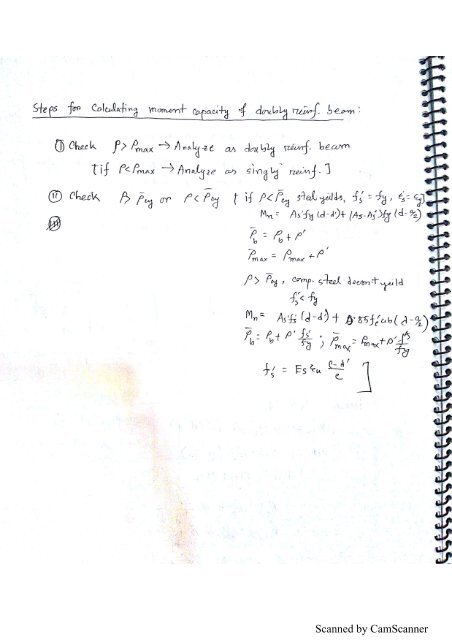 Steps for Calculating moment capacity of doubly reinf. beam:
① Check ρ > ρmax → Analyze as doubly reinf. beam
[if ρ < ρmax → Analyze as singly reinf.]
⑪ Check ρ > ρ̄cy or ρ < ρ̄cy [if ρ < ρ̄cy steel yields, fs' = fy, εs' = εy]
Mn = As'fy (d-d') + (As-As')fy (d-a/2)
ρ̄b = ρb + ρ'
ρ̄max = ρmax + ρ'
ρ > ρ̄cy, comp. steel doesn't yeild
fs' < fy
Mn = As'fs' (d-d') + 0.85fc'ab (d-a/2)
ρ̄b = ρb + ρ' fs'/fy ; ρ̄max = ρmax + ρ' fs'/fy
fs' = Es εu (c-d')/c ]
Scanned by CamScanner